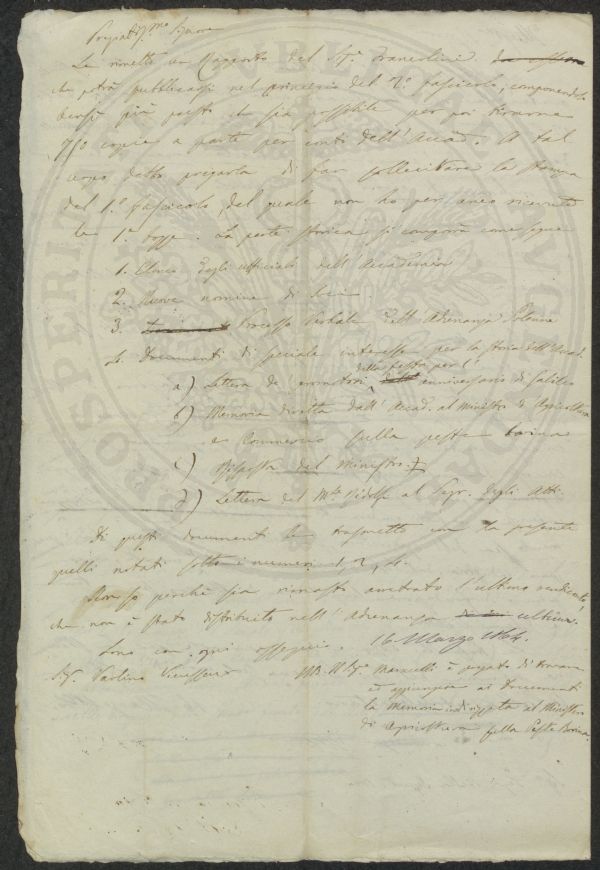 Pregiat.mo Signore
Le rimetto un Rapporto del Sig. Francolini
che potrà pubblicarsi nel principio del 2.o fascicolo; componendolo
più presto che sia possibile per poi tirarne
750 copie a parte per conto dell'Accad. A tal
debbo pregarla di far sollecitare la stampa
del 1.o fascicolo, del quale non ho per anco ricevuto
le 1.e La parte storica si comporrà come segue
1. Elenco degli ufficiali dell'Accademia
2. Nuove nomine di Soci.
3. Processo Verbale dell'Adunanza Solenne
4. Documenti di speciale interesse per la storia dell'Accad.
a) Lettera de' promotori della festa per l'anniversario di Galileo
b) Memoria diretta dall'Accad. al Ministro d'Agricoltura
e Commercio sulla peste bovina
c) Risposta del Ministro.
d) Lettera del M.se Ridolfi al Segr. degli Atti.
Di questi documenti le trasmetto con la presente
quelli notati sotto i numeri 1, 2, 4.
perché sia rimasto arretrato l'ultimo rendiconto,
che non è stato distribuito nell'Adunanza ultima.
Sono con ogni ossequio. 16 Marzo 1864.
Sig. Paolino Vieusseux NB. Il Sig. è pregato di
ed aggiungere ai Documenti
la Memoria indirizzata al Ministro
di Agricoltura sulla Peste Bovina.